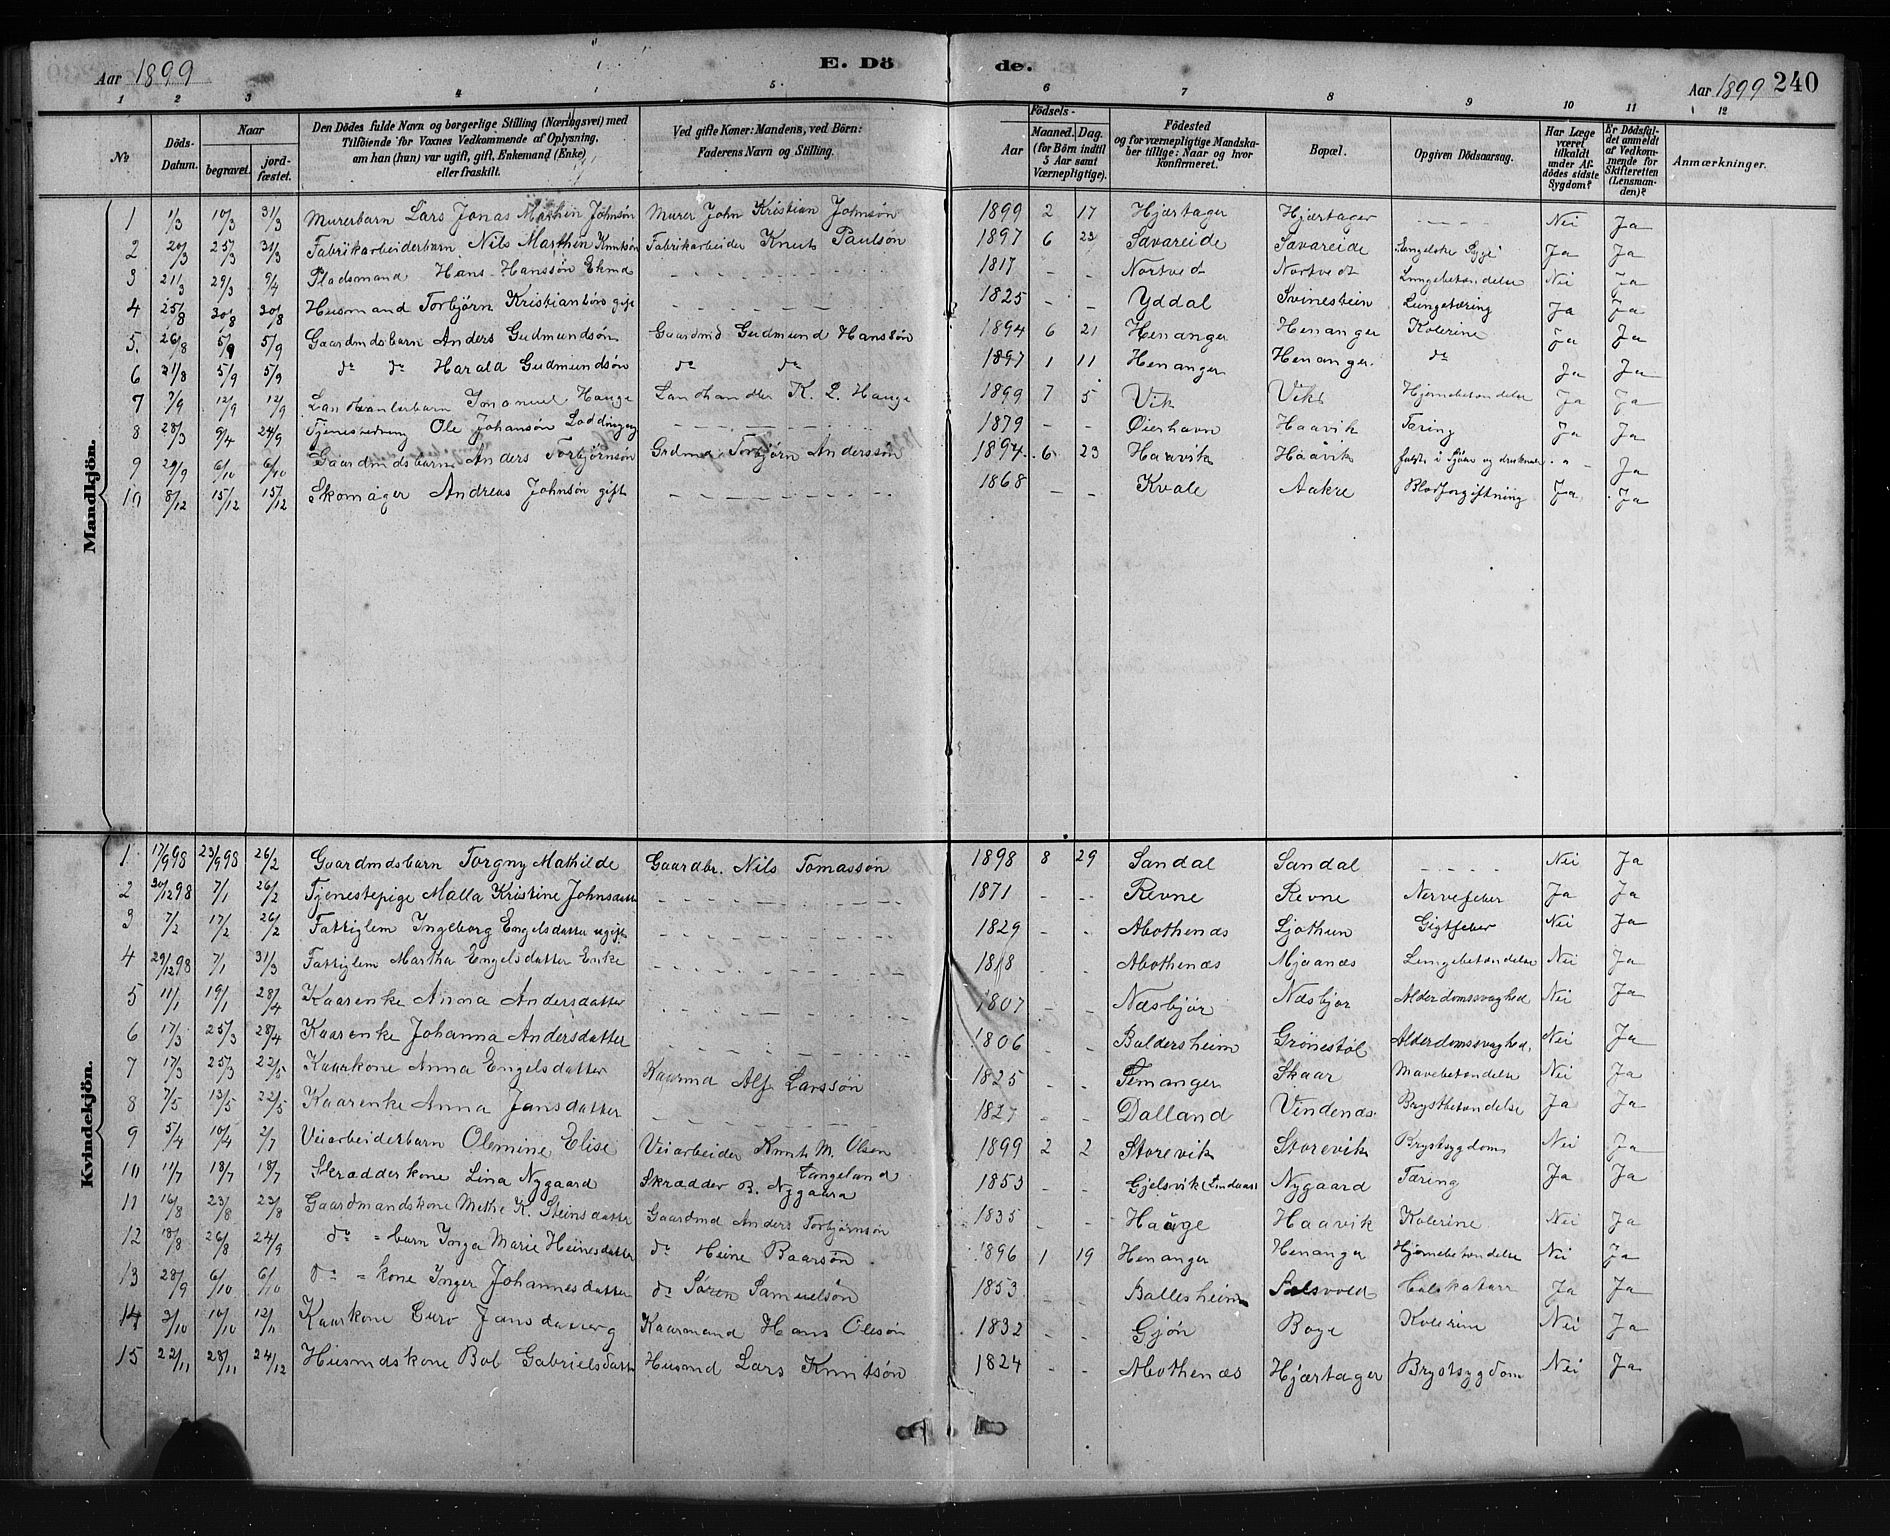 Aar 1899 E. Dö de. Aar 1899 240
1 2 3 4 5. 6 7 8 9 10 11 12
No Döds-Datum. Naar begravet. jord-fæstet. Den Dödes fulde Navn og borgerlige Stilling (Næringsvei) med Tilföiende for Voxnes Vedkommende af Oplysning, om han (hun) var ugift, gift, Enkemand (Enke) eller fraskilt. Ved gifte Koner: Mandens, ved Börn: Faderens Navn og Stilling. Födsels- Aar Maaned. Dag. (for Börn indtil 5 Aar samt Værnepligtige). Födested og for værnepligtige Mandskaber tillige: Naar og hvor konfirmeret. Bopæl. Opgiven Dödsaarsag. Har Læge været tilkaldt under Afdödes sidste Sygdom? Er Dödsfaldet anmeldt af Vedkommende for Skifteretten (Lensmanden)? Anmærkninger.
Mandkjön.
1 1/3 10/3 31/3 Murerbarn Lars Jonas Marthin Johnsøn Murer John Kristian Johnsøn 1899 2 17 Hjærtager Hjærtager - - - - Nei Ja
2 20/3 25/3 31/3 Fabrikarbeiderbarn Nils Marthin Knutsøn Fabrikarbeider Knut Paulsøn 1897 6 23 Sævareide Sævareide Engelske Syge Ja Ja
3 21/3 29/3 9/4 Pladsmand Hans Hanssøn Ekmd - - - - 1817 - - Nortvedt Nortvedt Lungebetændelse Nei Ja
4 25/8 30/8 30/8 Husmand Torbjørn Kristiansøn gift - - - - 1825 - - Yddal Svinestein Lungetæring Ja Ja
5. 26/8 5/9 5/9 Gaardmdsbarn Anders Gudmundsøn Gaardmd Gudmund Hanssøn 1894 6 21 Henanger Henanger Kolerine Ja Ja
6 31/8 5/9 5/9 do do Harald Gudmundsøn do do 1897 1 11 Henanger Henanger do Ja Ja
7 7/9 12/9 12/9 Landhanlerbarn Imanuel Hauge Landhandler K. L. Hauge 1899 7 5 Vik Vik Hjernebetændelse Ja Ja
8 28/3 9/4 24/9 Ole Johansøn - - - - 1879 - - Øierhavn Haavik Tæring Ja Ja
9 29/9 6/10 6/10 Gaardmdsbarn Anders Torbjørnsøn Grdmd Torbjørn Anderssøn 1894 6 23 Haavik Haavik faldt i Sjøen og druknede - - Ja
10 8/12 15/12 15/12 Skomager Andreas Johnsøn gift - - - - 1868 - - Kvale Aakre Blodforgiftning Ja Ja
Kvindekjön.
1 17/9 98 23/9 98 26/2 Gaardmdsbarn Torgny Mathilde Gaardbr. Nils Tomassøn 1898 8 29 Sandal Sandal - - - - Nei Ja
2 30/12 98 7/1 26/2 Tjenestepige Malla Kristine Johnsdatter - - - - 1871 - - Revne Revne Nervefeber Ja Ja
3 7/2 17/2 26/2 Fattiglem Ingeborg Engelsdatter ugift - - - - 1829 - - Mothenæs Ljothun Gigtfeber Nei Ja
4 29/12 98 7/1 31/3 Fattiglem Martha Engelsdatter Enke - - - - 1818 - - Mothenæs Mjaanæs Lungebetændelse Nei Ja
5 11/1 19/1 28/4 Kaarenke Anna Andersdatter - - - - 1807 - - Næsbjør Næsbjør Alderdomssvaghed Nei Ja
6 17/3 25/3 28/4 Kaarenke Johanna Andersdatter - - - - 1806 - - Baldersheim Grønestøl Alderdomssvaghed. Nei Ja
7 17/3 25/3 22/5 Kaarkone Anna Engelsdatter Kaarmd Alf Larssøn 1825 - - Femanger Skaar Mavebetændelse Nei Ja
8 7/5 13/5 22/5 Kaarenke Anna Jansdatter - - - - 1827 - - Dalland Vindenæs Brystbetændelse Ja Ja
9 5/4 10/4 2/7 Veiarbeiderbarn Olemine Elise Veiarbeider Knut M. Olsen Tangeland 1899 2 2 Storevik Storevik Brystsygdom Nei Ja
10 11/7 18/7 18/7 Skrædderkone Lina Nygaard Skrædder B. Nygaard 1853 - - Gjelsvik Nygaard Tæring Ja Ja
11 16/8 23/8 23/8 Gaardmandskone Methe K. Steinsdatter Gaardmd Anders Torbjørnsøn 1835 - - Hauge Haavik Kolerine Nei Ja
12 18/8 26/8 24/9 do = barn Inga Marie Heinesdatter do Heine Baarsøn 1896 1 19 Henanger Henanger Hjernebetændelse Nei Ja
13 28/9 6/10 6/10 do = kone Inger Johannesdatter do Søren Samuelsøn 1853 - - Ballesheim Halskatarr Ja Ja
14 3/10 10/10 12/11 Kaarkone Guro Jansdatter Kaarmand Hans Olesøn 1832 - - Gjøn Boge Kolerine Nei Ja
15 22/11 28/11 24/12 Husmdskone Bol Gabrielsdatter Husmd Lars Knutsøn 1824 - - Mothenæs Hjærtager Brystsygdom Nei Ja